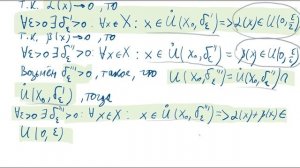 Т.К. α(x)→0, то
∀ε>0 ∃δ'ε>0: ∀x∈X: x∈U̇(x₀,δ'ε)=>α(x)∈U(0,ε)
Т.К. β(x)→0, то
∀ε>0 ∃δ''ε>0: ∀x∈X: x∈U̇(x₀,δ''ε)=>β(x)∈U(0,ε)
Возьмём δ'''ε>0, такое, что U̇(x₀,δ'''ε)=U̇(x₀,δ'ε)∩
U̇(x₀,δ''ε), тогда
∀ε>0 ∃δ'''ε>0: ∀x∈X: x∈U̇(x₀,δ'''ε)=>α(x)+β(x)∈
U(0,ε)